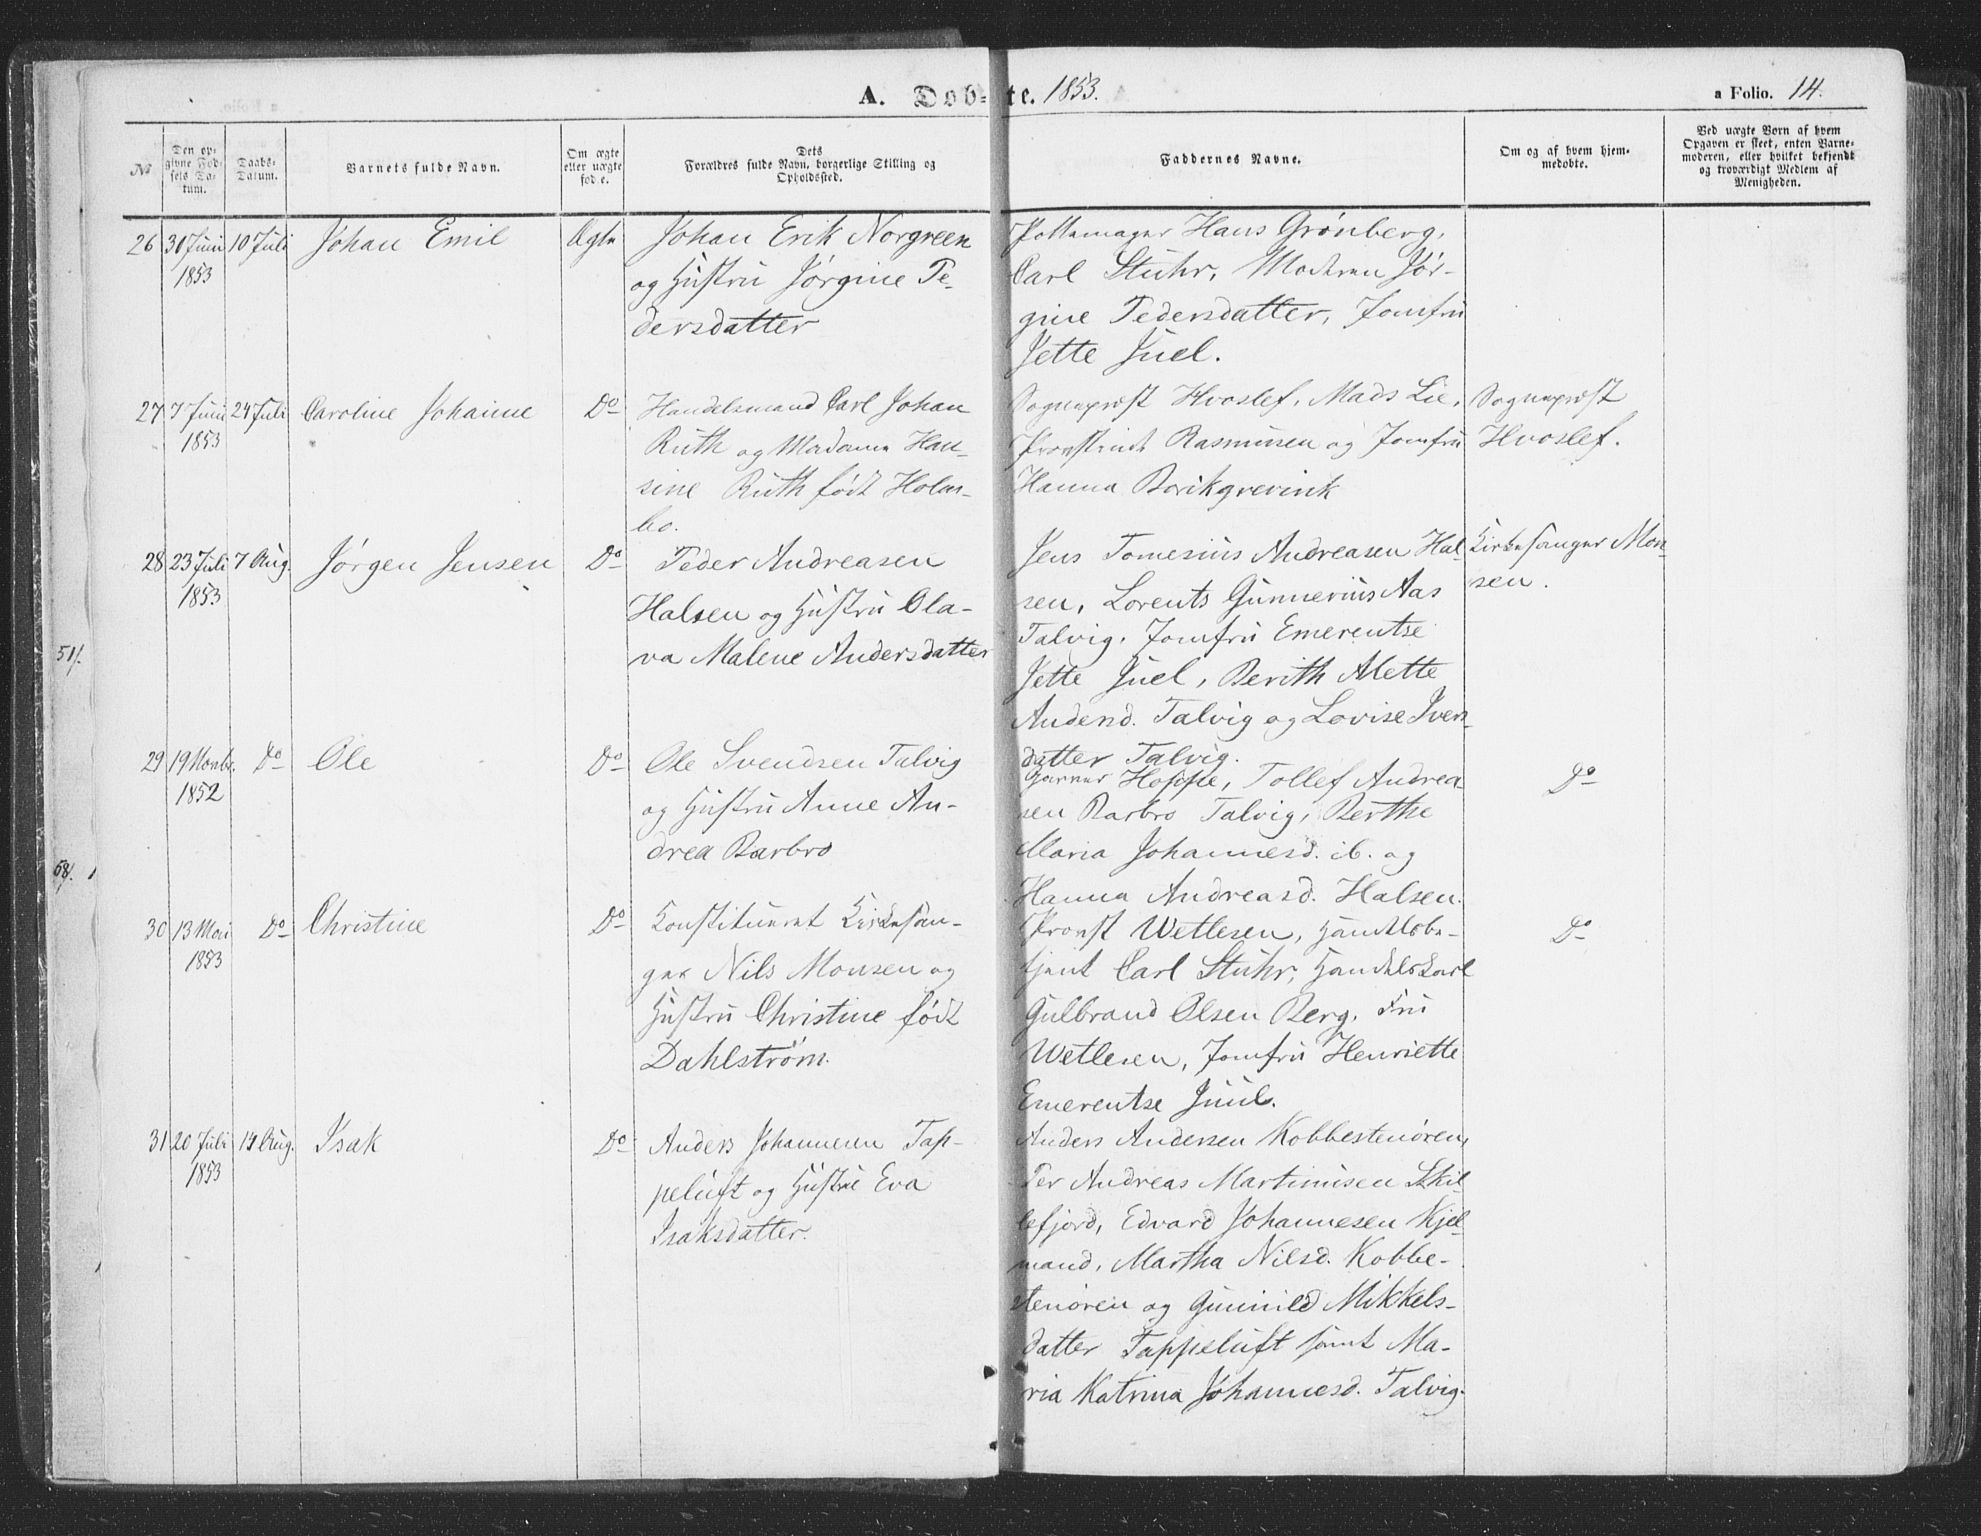 A. Döbte. 1853.
a Folio. 14.
No
Den opgivne Fødsels Datum.
Daabs-Datum.
Barnets fulde Navn.
Om ægte eller uægteføde.
Dets Forældres fulde Navn, borgerlige Stilling og Opholdssted.
Faddernes Navne.
Om og af hvem hjemmedøbte.
Ved uægte Børn af hvem Opgaven er skeet, enten Barnemoderen, eller hvilket bekjendt og troværdigt Medlem af Menigheden.
26 30 Juni 1853 10 Juli Johan Emil Ægte
Johan Erik Norgreen
og Hustru Jørgine Pe-
dersdatter
Pottemager Hans Grønberg,
Carl Stuhr, Moderen Jør-
gine Pedersdatter, Jomfru
Jette Juel.
27 7 Juni 1853 24 Juli Caroline Johanne Do
Handelsmand Carl Johan
Ruth og Madame Han-
sine Ruth født Holm-
bo.
Sogneprest Hvoslef, Mads Lie,
Provstinde Rasmussen og Jomfru
Hanna Borikgrevink
Sogneprest
Hvoslef.
28 23 Juli 1853 7 Aug. Jørgen Jensen Do
Peder Andreasen
Halsen og Hustru Ola-
va Malene Andersdatter
Jens Tomesius Andreasen Hal-
sen, Lorents Gunnerius Aas
Talvig, Jomfru Emerentse
Jette Juel, Berith Alette
Andersd. Talvig og Lovise Ivers-
datter Talvig.
Kirkesanger Mon-
sen.
51/.
29 19 Novbr. 1852 Do Ole Do
Ole Svendsen Talvig
og Hustru Anne An-
drea Barbro
Garver Hoppe, Tollef Andrea-
sen Barbro Talvig, Berthe
Maria Johannesd. ib. og
Hanna Andreasd. Halsen.
Do
58/.
30 13 Mai 1853 Do Christine Do
Konstitueret Kirkesan-
ger Nils Monsen og
Hustru Christine født
Dahlstrøm.
Provst Wetlesen, Handelsbe-
tjent Carl Stuhr, Handelskarl
Gulbrand Olsen Berg, Fru
Wetlesen, Jomfru Henriette
Emerentse Juul.
Do
31 20 Juli 1853 14 Aug. Isak Do
Anders Johannesen Tap-
peluft og Hustru Eva
Isaksdatter.
Anders Andersen Kobbestenøren,
Per Andreas Martinusen Skil-
lefjord, Edvard Johannesen Kjel-
mand, Martha Nilsd. Kobbe-
stenøren og Gunnild Mikkels-
datter Tappeluft samt Ma-
ria Katrina Johannesd. Talvig.